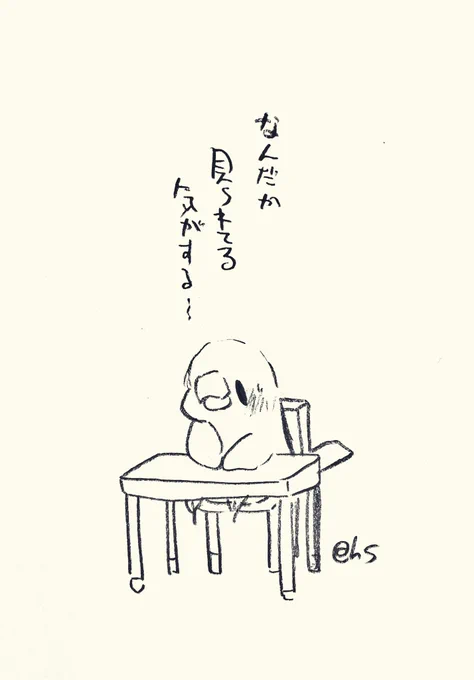 なんだか
見られてる
気がする〜
@hs